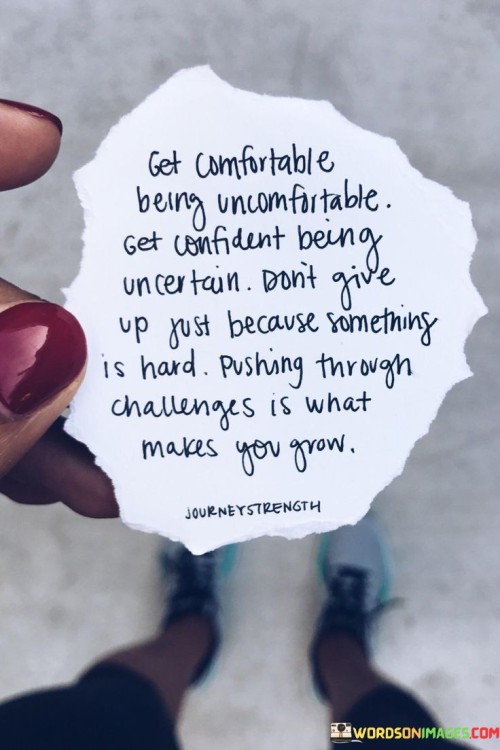 Get comfortable
being uncomfortable.
Get confident being
uncertain. Don't give
up just because something
is hard. Pushing through
challenges is what
makes you grow.
JOURNEYSTRENGTH
WORDSONIMAGES.COM